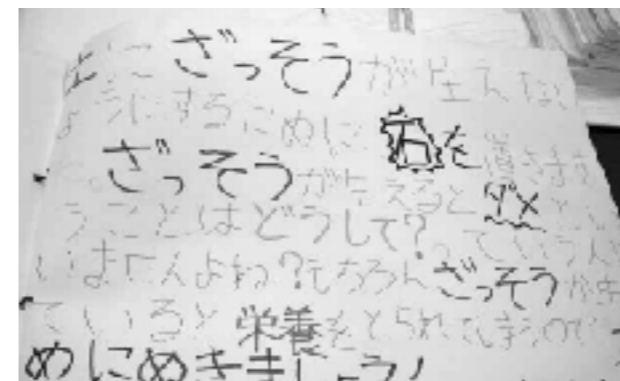 土に ざっそうが生えない
ようにするために 石を置きます
。ざっそうが生えるとダメとい
うことはどうして?っていう人
いませんよね?もちろんざっそうが生
ていると栄養をとられてしまうので
めにぬきましょう!